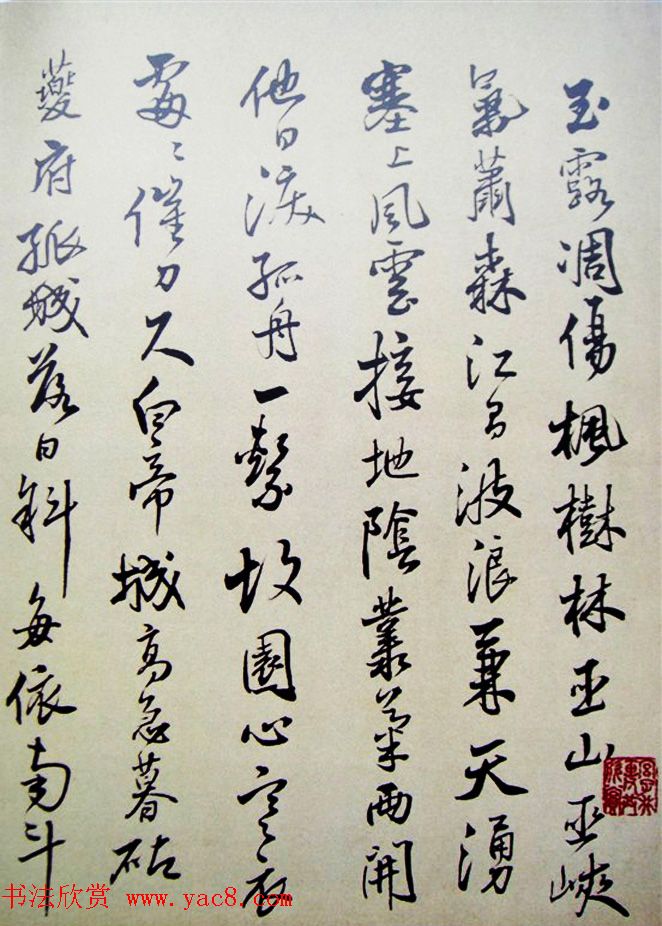 玉露凋傷楓樹林巫山巫峽
氣蕭森江間波浪兼天湧
塞上風雲接地陰叢菊兩開
他日淚孤舟一繫故園心寒衣
處々催刀尺白帝城高急暮砧
夔府孤城落日斜每依南斗
书法欣赏 www.yac8.com